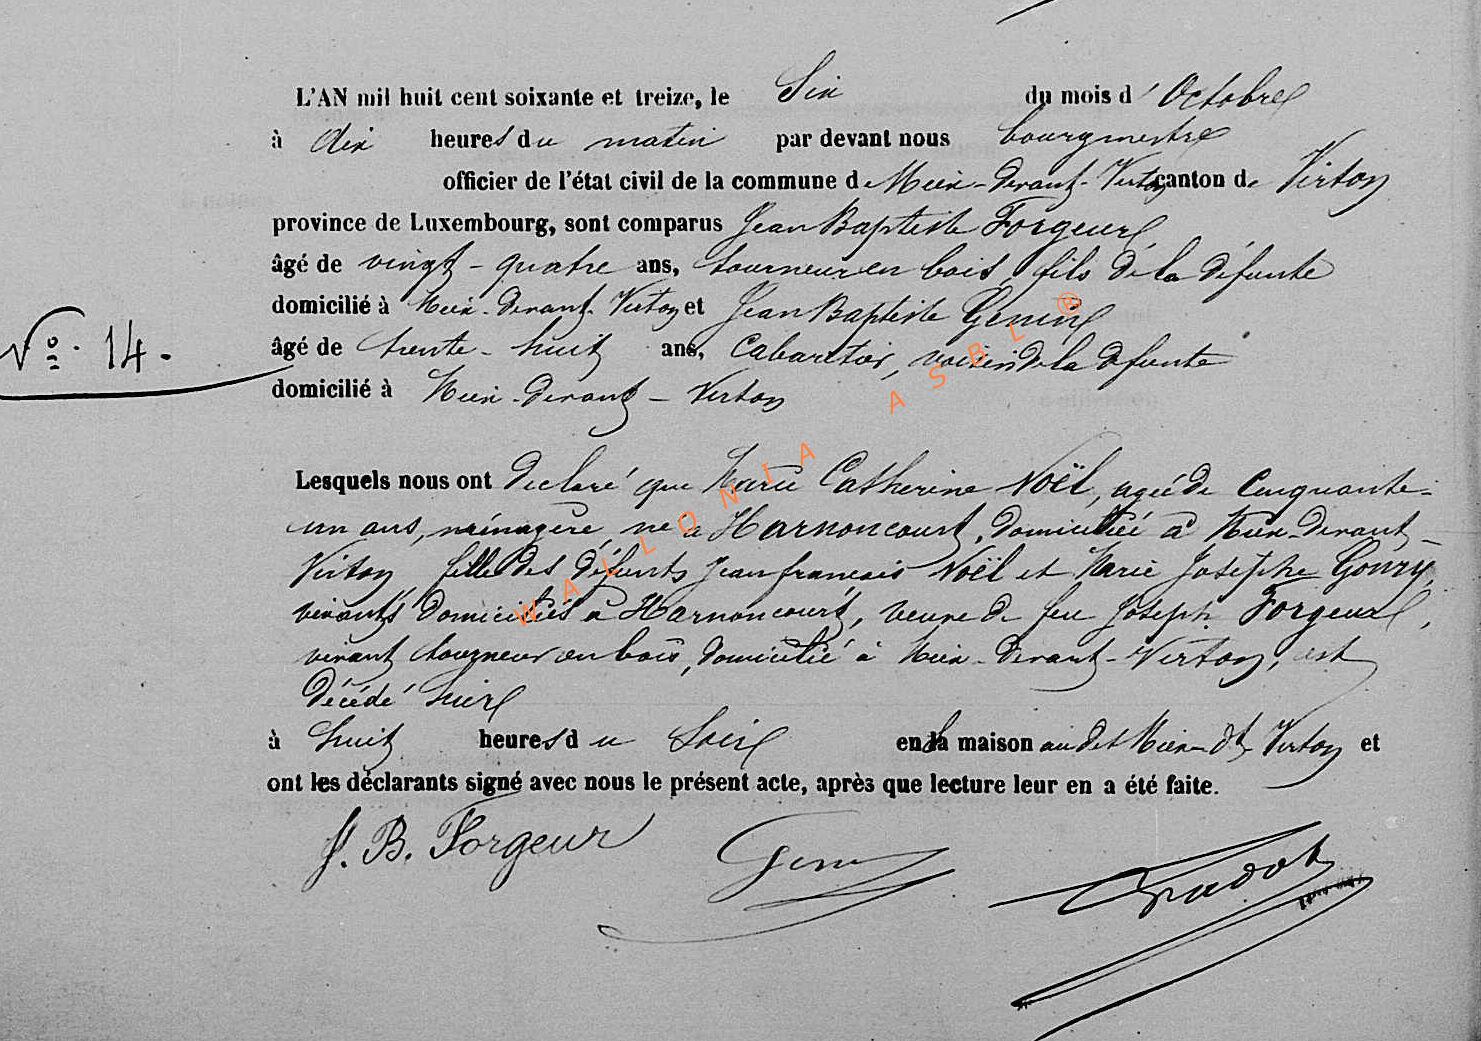 L'AN mil huit cent soixante et treize, le Six du mois d' Octobre
à dix heures du matin par devant nous bourgmestre
officier de l'état civil de la commune de Meix-devant-Virton canton de Virton
province de Luxembourg, sont comparus Jean Baptiste Forgeur
âgé de vingt-quatre ans, tourneur en bois, fils de la défunte
domicilié à Meix-devant-Virton et Jean Baptiste Genin
N° 14.
âgé de trente-huit ans, Cabaretier, voisin de la défunte
domicilié à Meix-devant-Virton
Lesquels nous ont declaré que Marie Catherine Noël, agée de Cinquante-
un ans, ménagère, né à Harnoncourt, domiciliée à Meix-devant-
Virton, fille des défunts Jean françois Noël et Marie Josephe Goury,
vivants domiciliés à Harnoncourt, veuve de feu Joseph Forgeur,
vivant tourneur en bois, domicilié à Meix-devant-Virton, est
décédé hier
à huit heures du soir en sa maison audit Meix-dt Virton et
ont les déclarants signé avec nous le présent acte, après que lecture leur en a été faite.
J. B. Forgeur Genin
WALLONIA ASBL ®